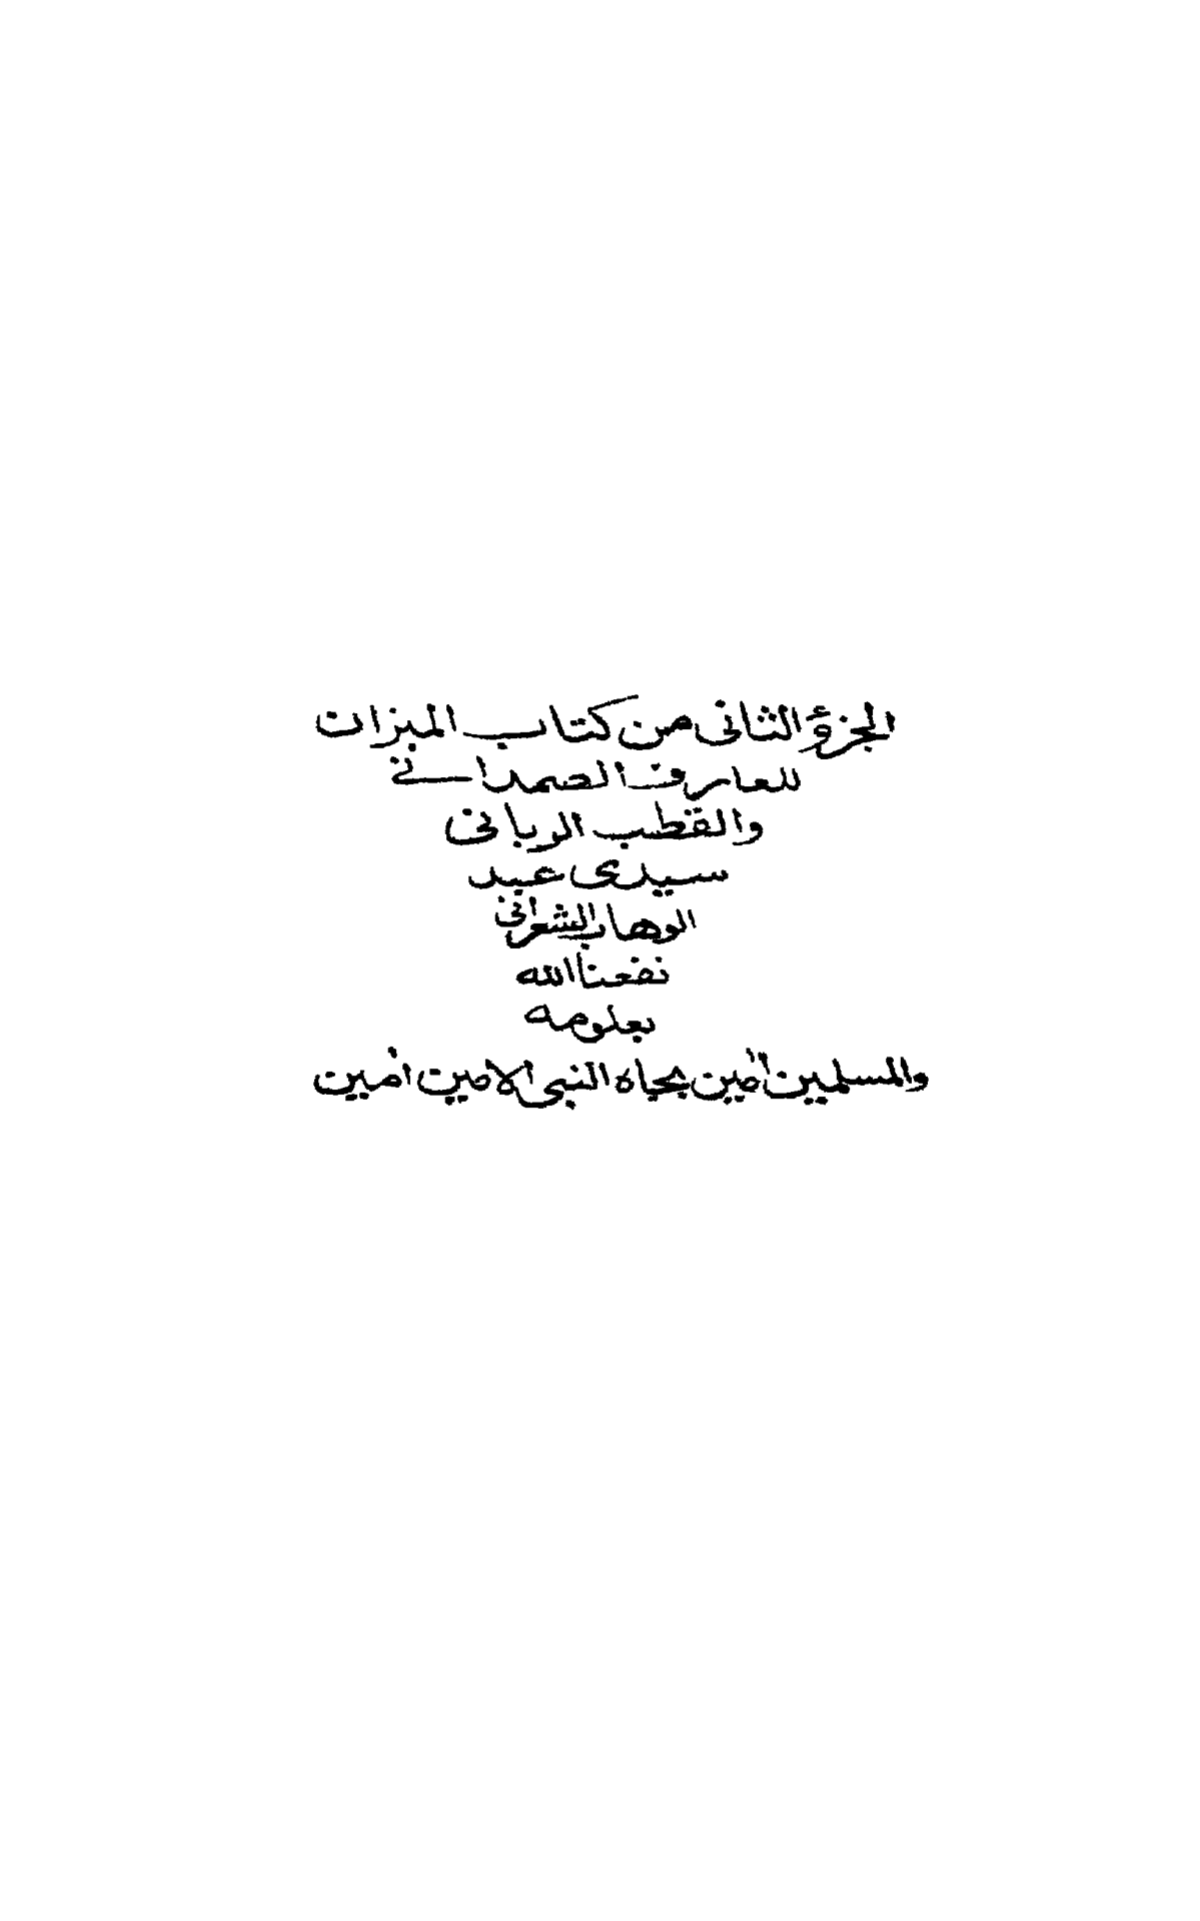 الجزؤ الثانى من كتاب الميزان
للعارف الصمدانى
والقطب الربانى
سيدى عبد
الوهاب الشعرانى
نفعنا الله
بعلومه
والمسلمين أمين بجاه النبى الامين أمين